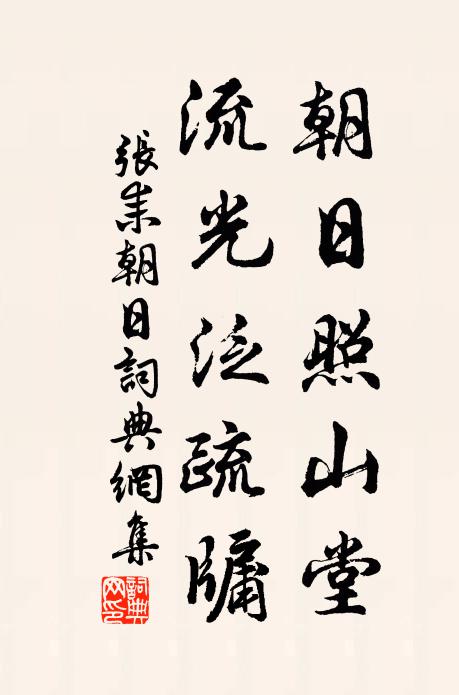 朝日照山堂
流光泛疏牖
張耒朝日詞典網集
詞典
网印